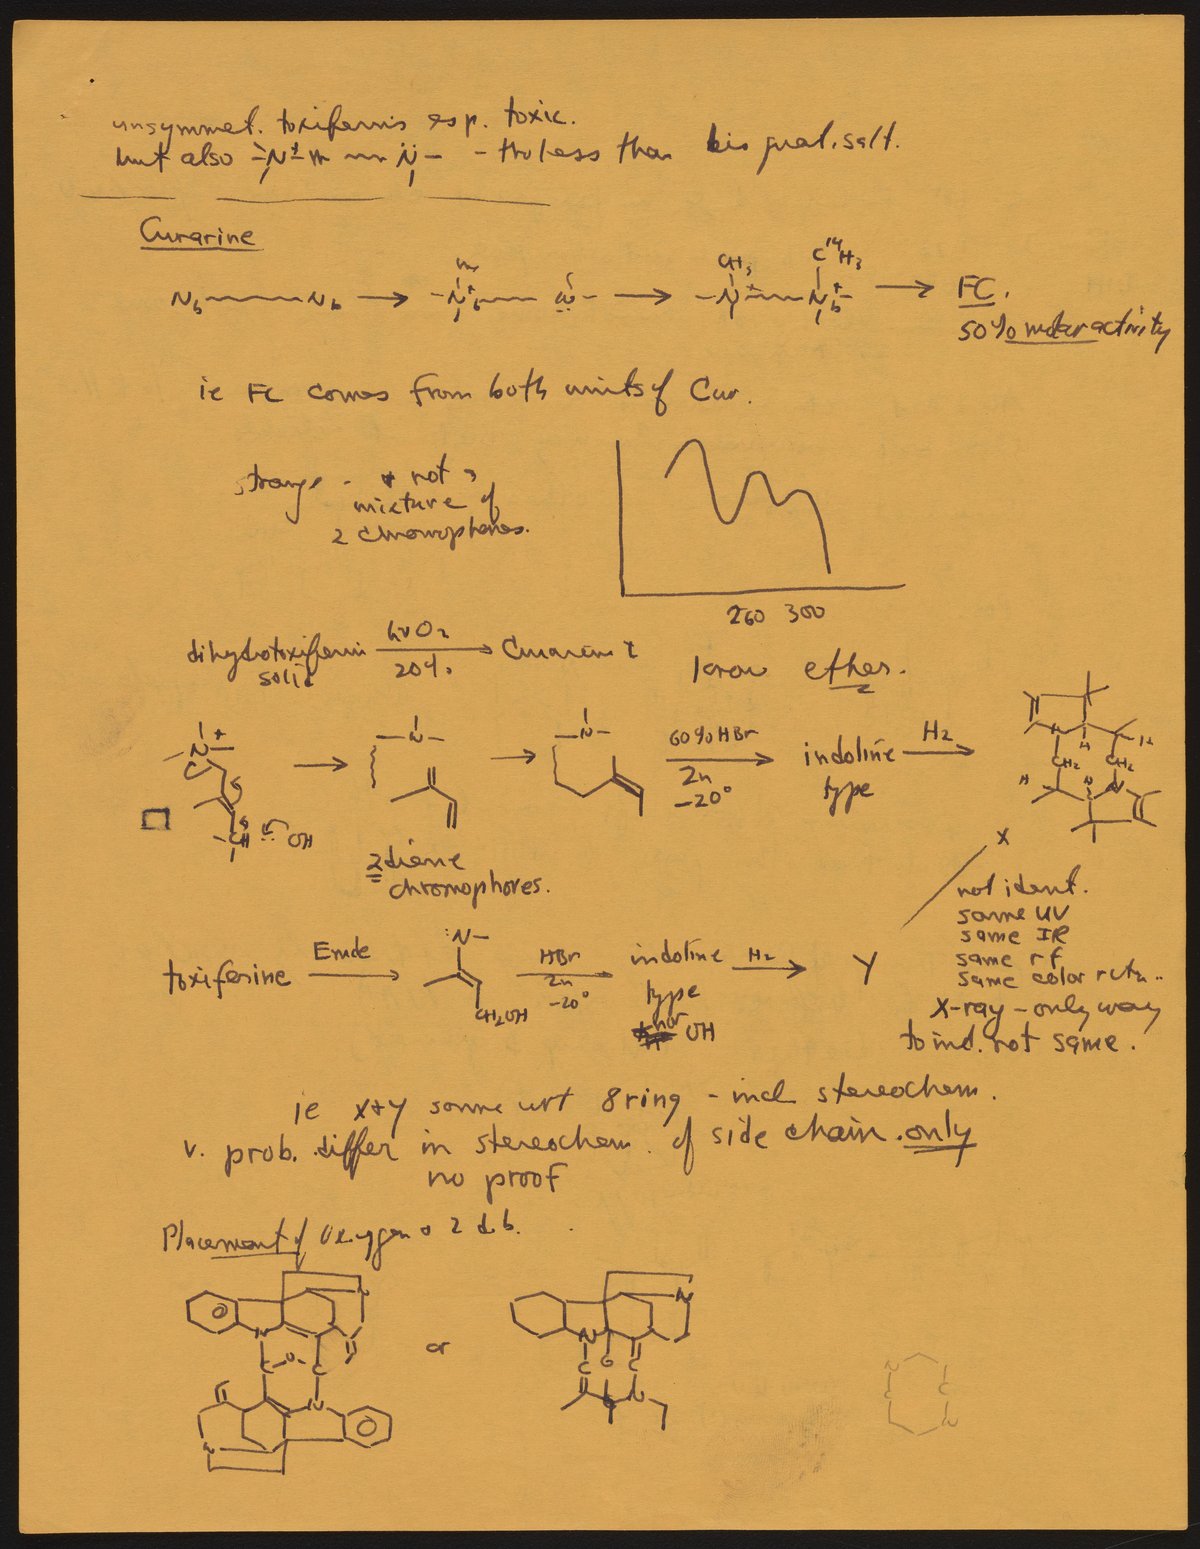 unsymmet. toxiferins esp. toxic.
but also N+ N - tho less than bis quat. salt.
Curarine
Nb Nb → N+b N → CH3 C14H3 N+ N+b → FC.
50% molar activity
ie FC comes from both units of Cur.
strange - & not a
mixture of
2 chromophores.
260 300
dihydrotoxiferin hν O2 → Curarin
solid 20%
know ether.
N+ → N → N 60% HBr → indoline H2 →
Zn type
-20°
CH OH
N H H
CH2 CH2
H N N
2 diene
chromophores.
X
not ident.
same UV
same IR
same rf
same color rctn..
X-ray - only way
to ind. not same.
toxiferine Emde → :N- HBr → indoline H2 → Y
Zn type
-20°
CH2OH nor OH
ie X+Y same wrt 8 ring - incl stereochem.
v. prob. differ in stereochem. of side chain. only
no proof
Placement of Oxygen & 2 d.b.
N N
C-O-C
N
N
or
N N
C O C
N
N C
C N